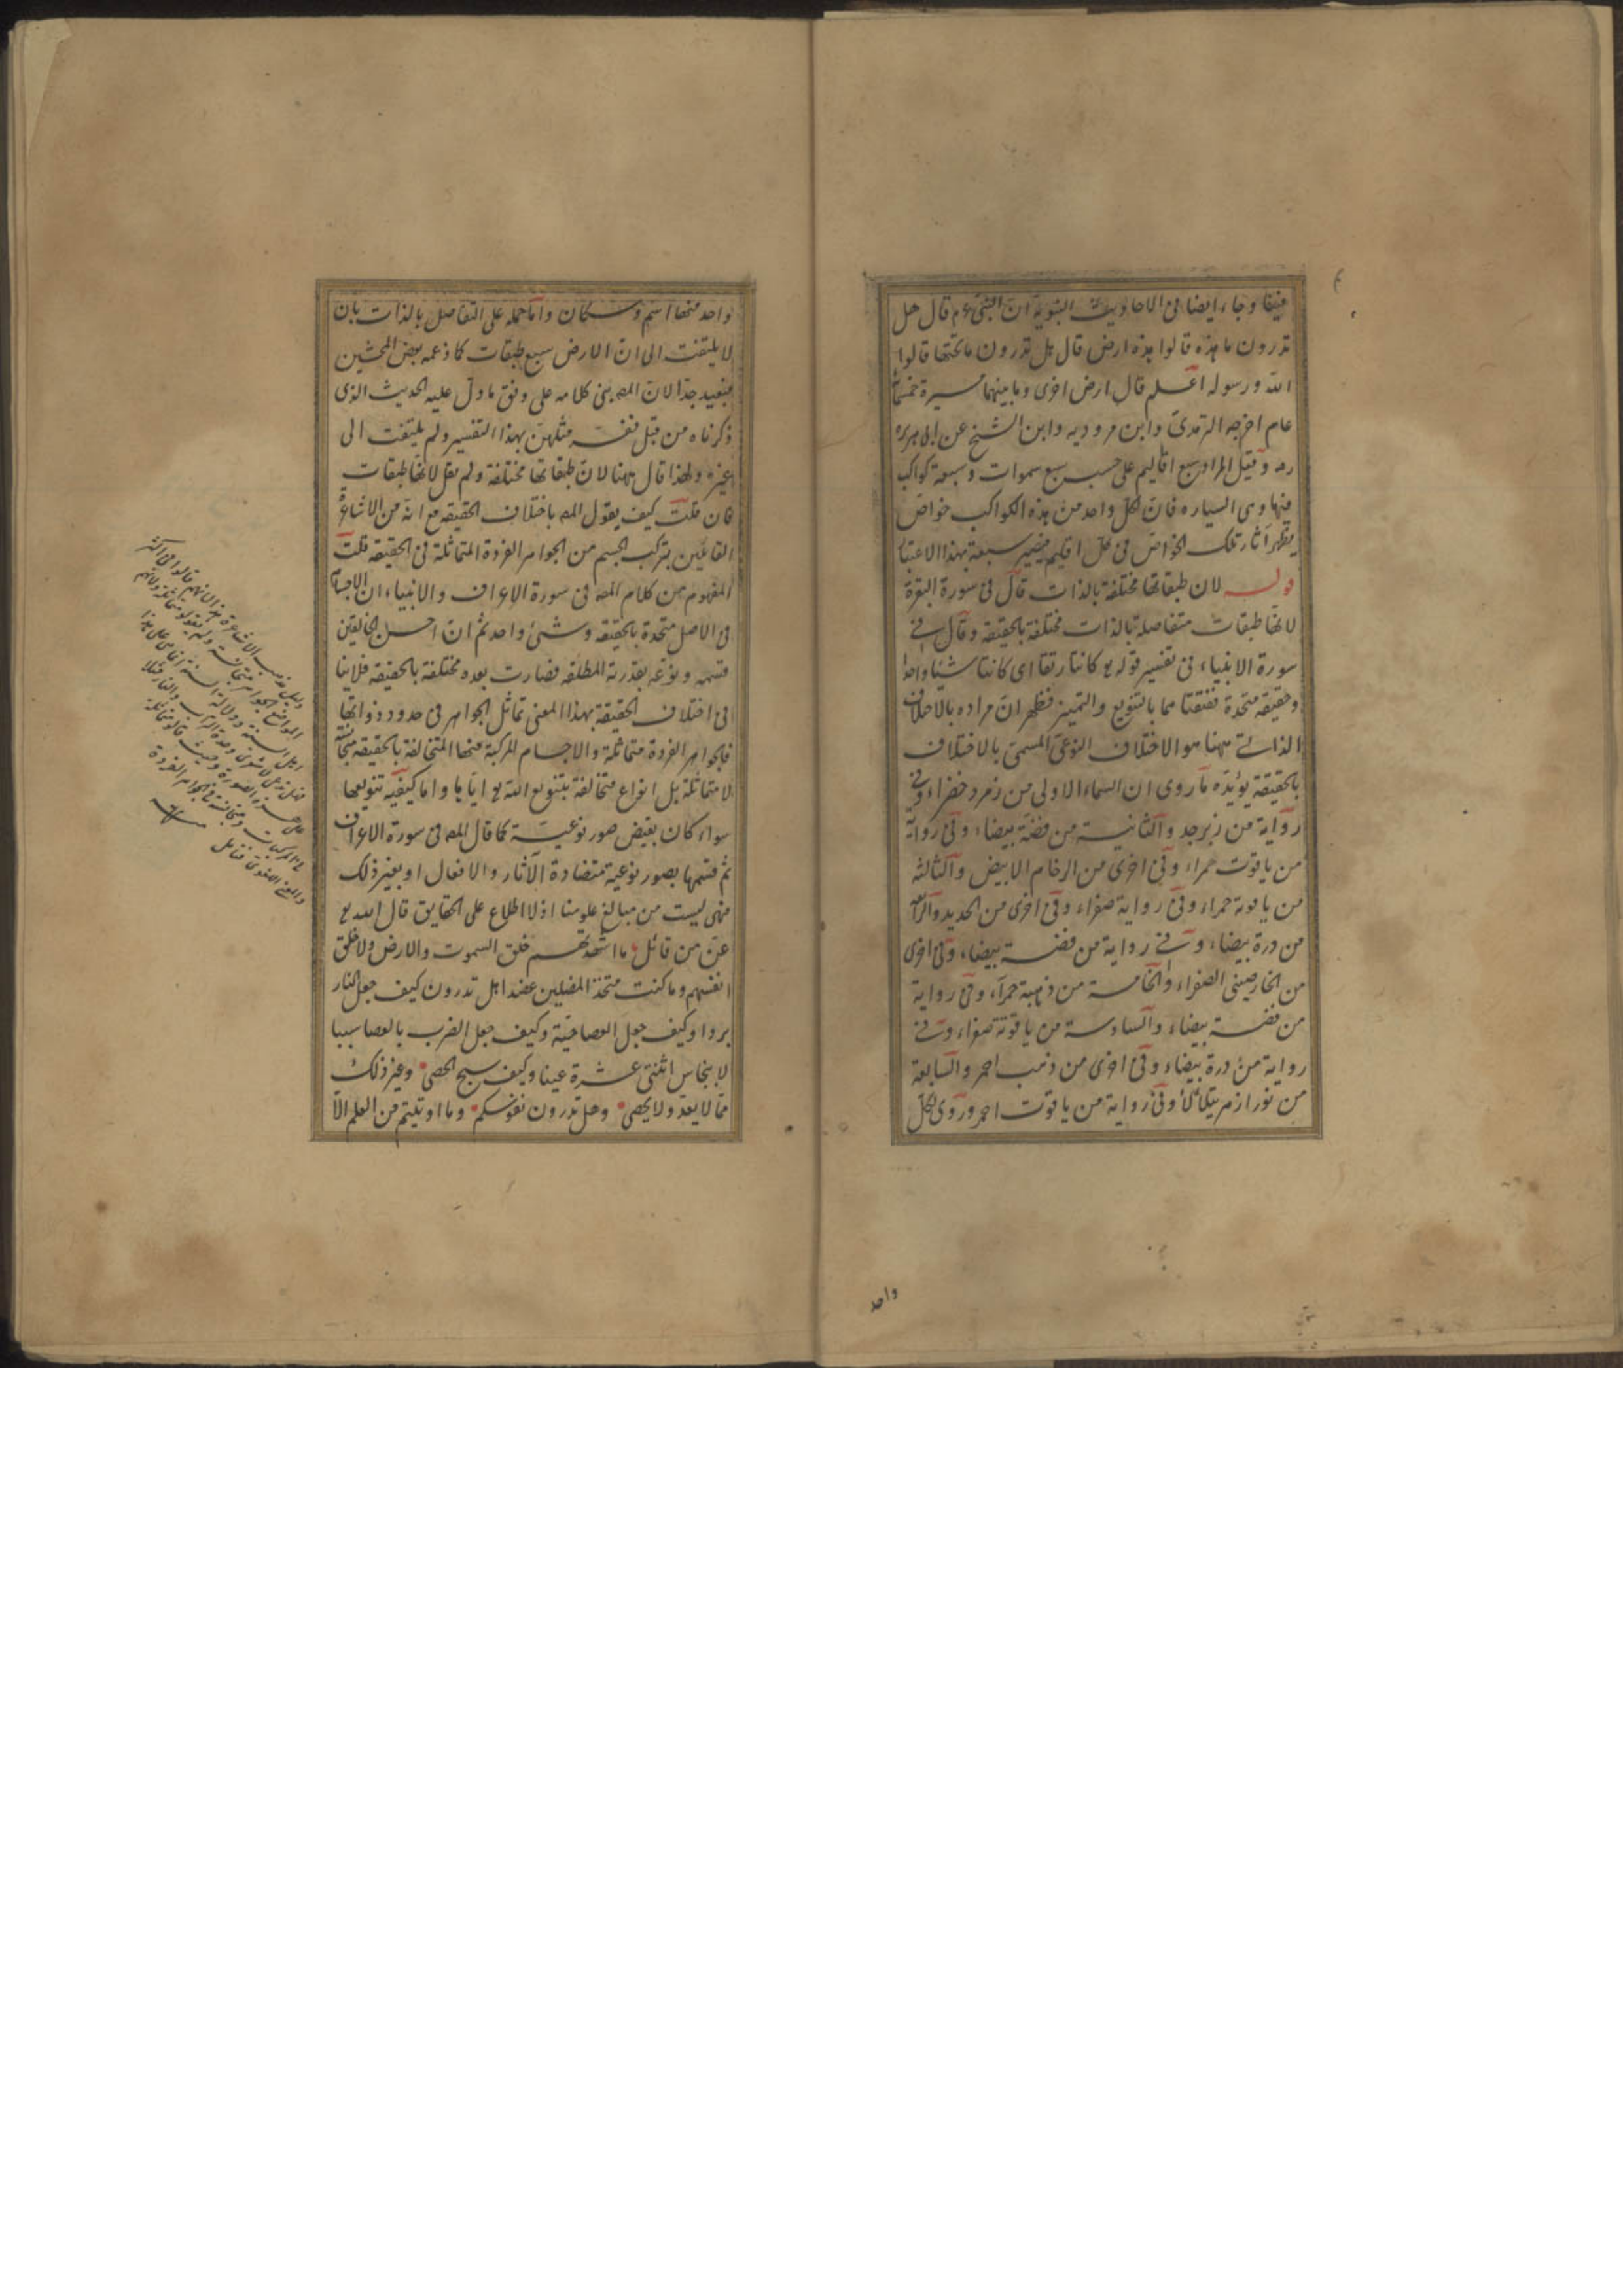 فيفا وجاء ايضا فى الاحاديث النبوية ان النبى ءم قال هل
تدرون ما هذه قالوا هذه ارض قال هل تدرون ما تحتها قالوا
الله ورسوله اعلم قال ارض اخرى وما بينهما مسيرة خمسمأ
عام اخرجه الترمذى وابن مرودية وابن الشيخ عن ابى هريره
رضه وقيل المراد سبع اقاليم على حسب سبع سموات وسبعة كواكب
فيها وهى السياره فان لكل واحد من هذه الكواكب خواص
يظهر آثار تلك الخواص فى كل اقليم فيصير سبعة بهذا الاعتبا
قوله لان طبقاتها مختلفة بالذات قال فى سورة البقرة
لانها طبقات متفاصلة بالذات مختلفة بالحقيقة وقال فى
سورة الانبياء فى تفسير قوله تع كانتا رتقا اى كانتا شيئا واحدا
وحقيقة متحدة ففتقناهما بالتنويع والتميز فظهر ان مراده بالاختلاف
الذاتى ههنا هو الاختلاف النوعى المسمى بالاختلاف
بالحقيقة يؤيده ما روى ان السماء الاولى من زمرد خضراء وفى
رواية من زبرجد والثانية من فضة بيضاء وفى رواية
من ياقوت حمراء وفى اخرى من الرخام الابيض والثالثه
من ياقوته حمراء وفى رواية صفراء وفى اخرى من الحديد والرابعة
من درة بيضاء وفى رواية من فضة بيضاء وفى اخرى
من الخارصينى الصفراء والخامسة من ذهبية حمراء وفى رواية
من فضة بيضاء والسادسة من ياقوتة صفراء وفى
رواية من درة بيضاء وفى اخرى من ذهب احمر والسابعة
من نور ازهر يتلألأ وفى رواية من ياقوت احمر وروى لكل
واحد
واحد منها اسم وسكان واما حمله على التفاصل بالذات بان
لا يلتفت الى ان الارض سبع طبقات كما ذعمه بعض المحشين
فبعيد جدا لان المص بنى كلامه على وفق ما دل عليه الحديث الذى
ذكرناه من قبل ففسر مثلهن بهذا التفسير ولم يلتفت الى
غيره ولهذا قال ههنا لان طبقاتها مختلفة ولم يقل لانها طبقات
فان قلت كيف يقول المص باختلاف الحقيقة مع انه من الاشاعرة
القائلين بتركب الجسم من الجواهر الفردة المتماثلة فى الحقيقة قلت
المفهوم من كلام المص فى سورة الاعراف والانبياء ان الاجسام
فى الاصل متحدة بالحقيقة وشىء واحد ثم ان احسن الخالقين
قسمه ونوعه بقدرته المطلقه فصارت بعده مختلفة بالحقيقه فلا ينا
فى اختلاف الحقيقة بهذا المعنى تماثل الجواهر فى حدود ذواتها
فالجواهر الفردة متماثلة والاجسام المركبة منها المتخالفة بالحقيقه متجانسة
لا متماثلة بل انواع متخالفة بتنويع الله تع اياها واما كيفية تنويعها
سواء كان بفيض صور نوعية كما قال المص فى سورة الاعراف
ثم قسمها بصور نوعية متضادة الآثار والافعال او بغير ذلك
فهى ليست من مبالغ علومنا اذ لا اطلاع على الحقايق قال الله تع
عز من قائل ما اشهدتهم خلق السموت والارض ولا خلق
انفسهم وما كنت متخذ المضلين عضدا هل تدرون كيف جعل النار
بردا وكيف جعل العصا حية وكيف جعل الضرب بالعصا سببا
لانبجاس اثنتى عشرة عينا وكيف سبح الحصى وغير ذلك
مما لا يعد ولا يحصى وهل تدرون نفوسكم وما اوتيتم من العلم الا